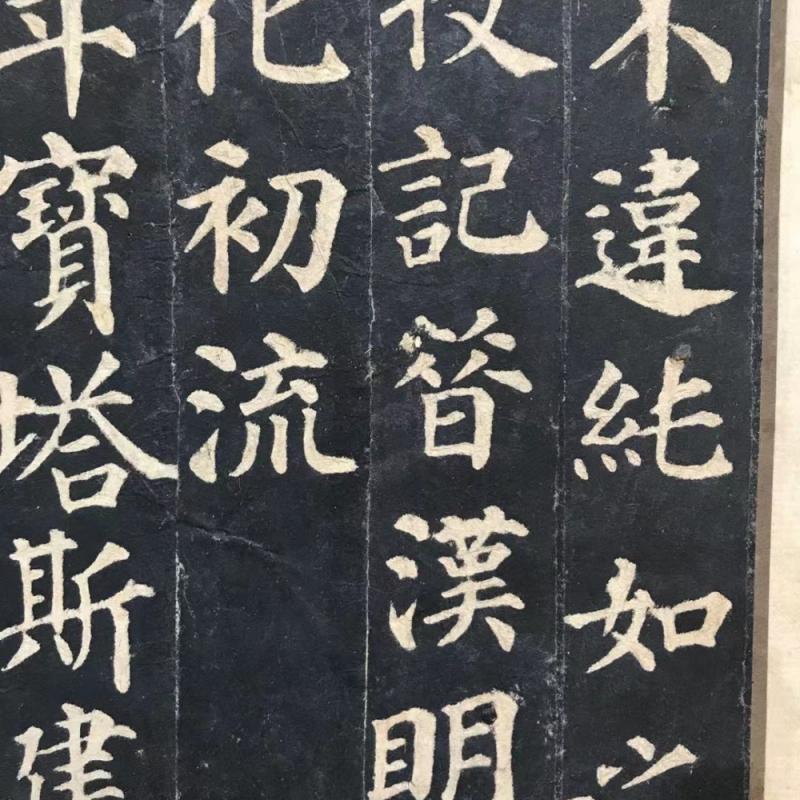 不違純如
記昔漢明
化初流
年寶塔斯建